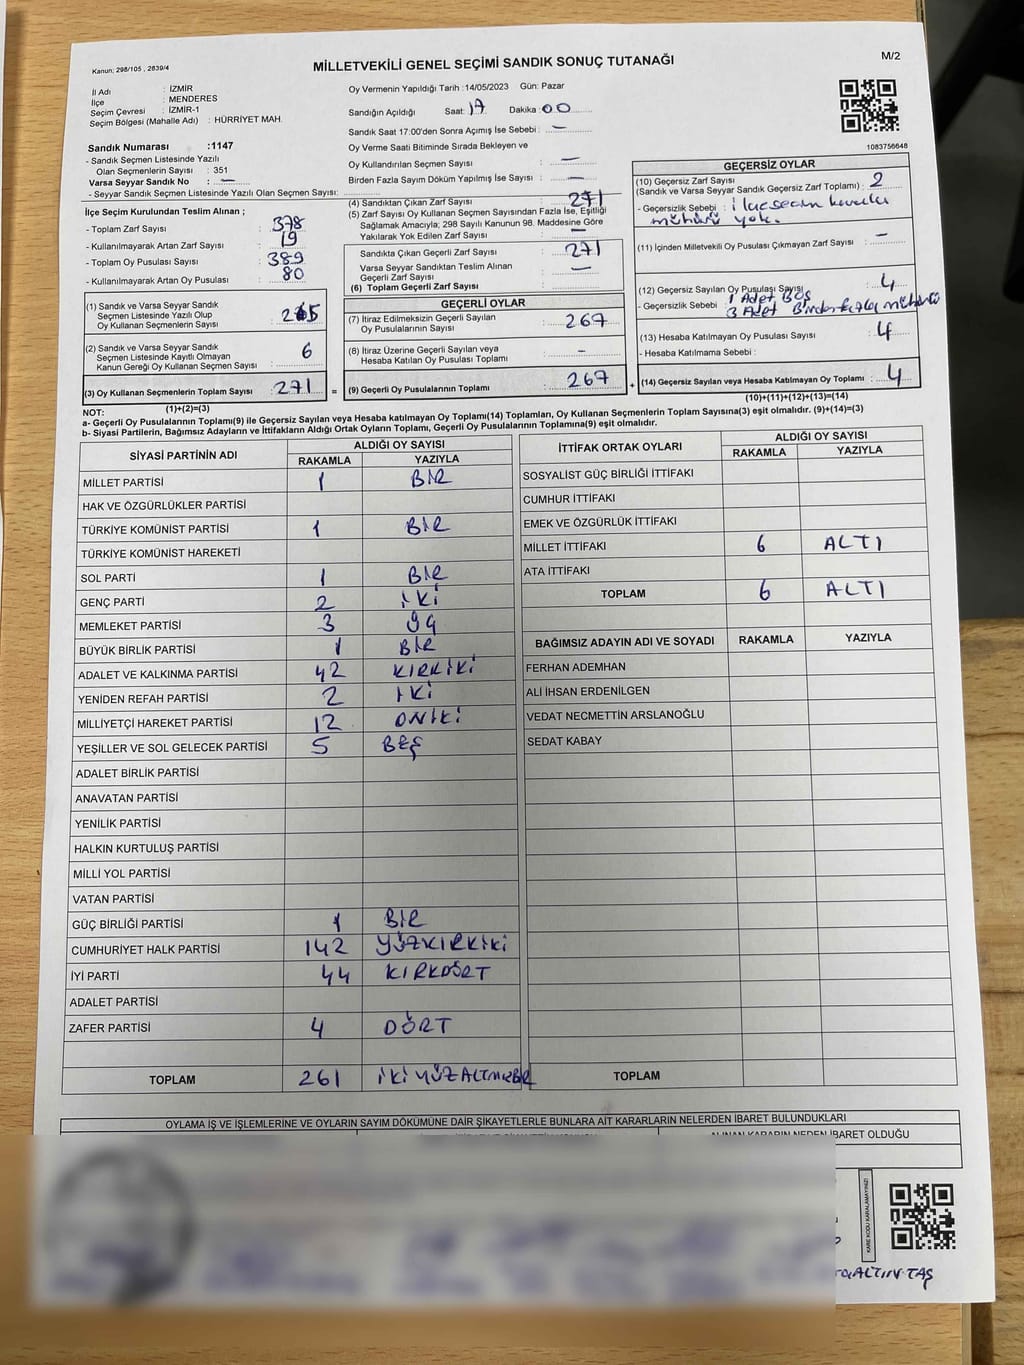 Kanun; 298/105 , 2839/4
MİLLETVEKİLİ GENEL SEÇİMİ SANDIK SONUÇ TUTANAĞI
M/2
İl Adı : İZMİR
İlçe : MENDERES
Seçim Çevresi : İZMİR-1
Seçim Bölgesi (Mahalle Adı) : HÜRRİYET MAH.
Sandık Numarası :1147
- Sandık Seçmen Listesinde Yazılı
Olan Seçmenlerin Sayısı : 351
Varsa Seyyar Sandık No : —
- Seyyar Sandık Seçmen Listesinde Yazılı Olan Seçmen Sayısı:
İlçe Seçim Kurulundan Teslim Alınan ;
- Toplam Zarf Sayısı : 378
- Kullanılmayarak Artan Zarf Sayısı : 19
- Toplam Oy Pusulası Sayısı : 389
- Kullanılmayarak Artan Oy Pusulası : 80
(1) Sandık ve Varsa Seyyar Sandık
Seçmen Listesinde Yazılı Olup
Oy Kullanan Seçmenlerin Sayısı : 265
(2) Sandık ve Varsa Seyyar Sandık
Seçmen Listesinde Kayıtlı Olmayan
Kanun Gereği Oy Kullanan Seçmen Sayısı : 6
(3) Oy Kullanan Seçmenlerin Toplam Sayısı : 271
(1)+(2)=(3)
Oy Vermenin Yapıldığı Tarih :14/05/2023 Gün: Pazar
Sandığın Açıldığı Saat: 17 Dakika : 00
Sandık Saat 17:00'den Sonra Açımış İse Sebebi : —
Oy Verme Saati Bitiminde Sırada Bekleyen ve
Oy Kullandırılan Seçmen Sayısı : —
Birden Fazla Sayım Döküm Yapılmış İse Sayısı : —
(4) Sandıktan Çıkan Zarf Sayısı : 271
(5) Zarf Sayısı Oy Kullanan Seçmen Sayısından Fazla İse, Eşitliği
Sağlamak Amacıyla; 298 Sayılı Kanunun 98. Maddesine Göre
Yakılarak Yok Edilen Zarf Sayısı : —
Sandıkta Çıkan Geçerli Zarf Sayısı : 271
Varsa Seyyar Sandıktan Teslim Alınan
Geçerli Zarf Sayısı : —
(6) Toplam Geçerli Zarf Sayısı :
GEÇERLİ OYLAR
(7) İtiraz Edilmeksizin Geçerli Sayılan
Oy Pusulalarının Sayısı : 267
(8) İtiraz Üzerine Geçerli Sayılan veya
Hesaba Katılan Oy Pusulası Toplamı : -
= (9) Geçerli Oy Pusulalarının Toplamı : 267 +
1083756648
GEÇERSİZ OYLAR
(10) Geçersiz Zarf Sayısı
(Sandık ve Varsa Seyyar Sandık Geçersiz Zarf Toplamı) : 2
- Geçersizlik Sebebi : ilçe seçim kurulu
mühürü yok.
(11) İçinden Milletvekili Oy Pusulası Çıkmayan Zarf Sayısı : —
(12) Geçersiz Sayılan Oy Pusulası Sayısı : 4
- Geçersizlik Sebebi : 1 Adet BOŞ
3 Adet Birden fazla mühürlü
(13) Hesaba Katılmayan Oy Pusulası Sayısı : 4
- Hesaba Katılmama Sebebi :
(14) Geçersiz Sayılan veya Hesaba Katılmayan Oy Toplamı : 4
(10)+(11)+(12)+(13)=(14)
NOT:
a- Geçerli Oy Pusulalarının Toplamı(9) ile Geçersiz Sayılan veya Hesaba katılmayan Oy Toplamı(14) Toplamları, Oy Kullanan Seçmenlerin Toplam Sayısına(3) eşit olmalıdır. (9)+(14)=(3)
b- Siyasi Partilerin, Bağımsız Adayların ve İttifakların Aldığı Ortak Oyların Toplamı, Geçerli Oy Pusulalarının Toplamına(9) eşit olmalıdır.
SİYASİ PARTİNİN ADI ALDIĞI OY SAYISI
RAKAMLA YAZIYLA
MİLLET PARTİSİ 1 BİR
HAK VE ÖZGÜRLÜKLER PARTİSİ
TÜRKİYE KOMÜNİST PARTİSİ 1 BİR
TÜRKİYE KOMÜNİST HAREKETİ
SOL PARTİ 1 BİR
GENÇ PARTİ 2 İKİ
MEMLEKET PARTİSİ 3 ÜÇ
BÜYÜK BİRLİK PARTİSİ 1 BİR
ADALET VE KALKINMA PARTİSİ 42 KIRKİKİ
YENİDEN REFAH PARTİSİ 2 İKİ
MİLLİYETÇİ HAREKET PARTİSİ 12 ONİKİ
YEŞİLLER VE SOL GELECEK PARTİSİ 5 BEŞ
ADALET BİRLİK PARTİSİ
ANAVATAN PARTİSİ
YENİLİK PARTİSİ
HALKIN KURTULUŞ PARTİSİ
MİLLİ YOL PARTİSİ
VATAN PARTİSİ
GÜÇ BİRLİĞİ PARTİSİ 1 BİR
CUMHURİYET HALK PARTİSİ 142 YÜZKIRKİKİ
İYİ PARTİ 44 KIRKDÖRT
ADALET PARTİSİ
ZAFER PARTİSİ 4 DÖRT
TOPLAM 261 İKİYÜZALTMIŞBİR
İTTİFAK ORTAK OYLARI ALDIĞI OY SAYISI
RAKAMLA YAZIYLA
SOSYALİST GÜÇ BİRLİĞİ İTTİFAKI
CUMHUR İTTİFAKI
EMEK VE ÖZGÜRLÜK İTTİFAKI
MİLLET İTTİFAKI 6 ALTI
ATA İTTİFAKI
TOPLAM 6 ALTI
BAĞIMSIZ ADAYIN ADI VE SOYADI RAKAMLA YAZIYLA
FERHAN ADEMHAN
ALİ İHSAN ERDENİLGEN
VEDAT NECMETTİN ARSLANOĞLU
SEDAT KABAY
TOPLAM
OYLAMA İŞ VE İŞLEMLERİNE VE OYLARIN SAYIM DÖKÜMÜNE DAİR ŞİKAYETLERLE BUNLARA AİT KARARLARIN NELERDEN İBARET BULUNDUKLARI
ALINAN KARARIN NEDEN İBARET OLDUĞU
KARE KODU KARALAMAYINIZ!
ALTIN TAŞ